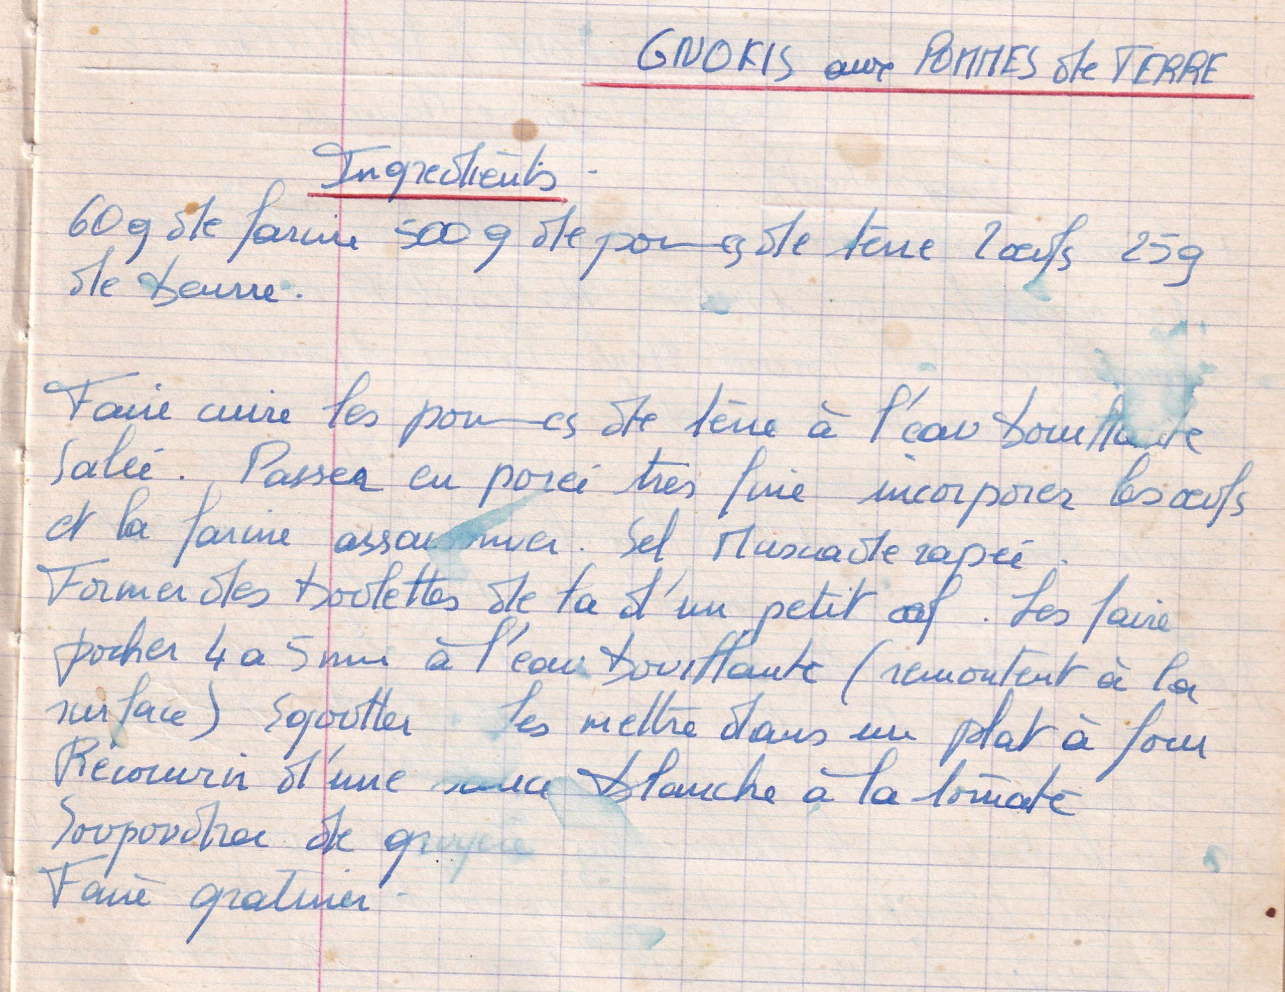 GNOKIS aux POMMES de TERRE
Ingrédients -
60 g de farine 500 g de pommes de terre 2 oeufs 25 g
de beurre.
Faire cuire les pommes de terre à l'eau bouillante
salée. Passer en purée très fine incorporer les oeufs
et la farine assaisonner. Sel Muscade rapée.
Former des boulettes de la d'un petit oeuf. Les faire
pocher 4 a 5 mn à l'eau bouillante (remontent à la
surface) Egoutter Les mettre dans un plat à four
Recouvrir d'une sauce blanche à la tomate
Soupoudrer de gruyère
Faire gratiner -